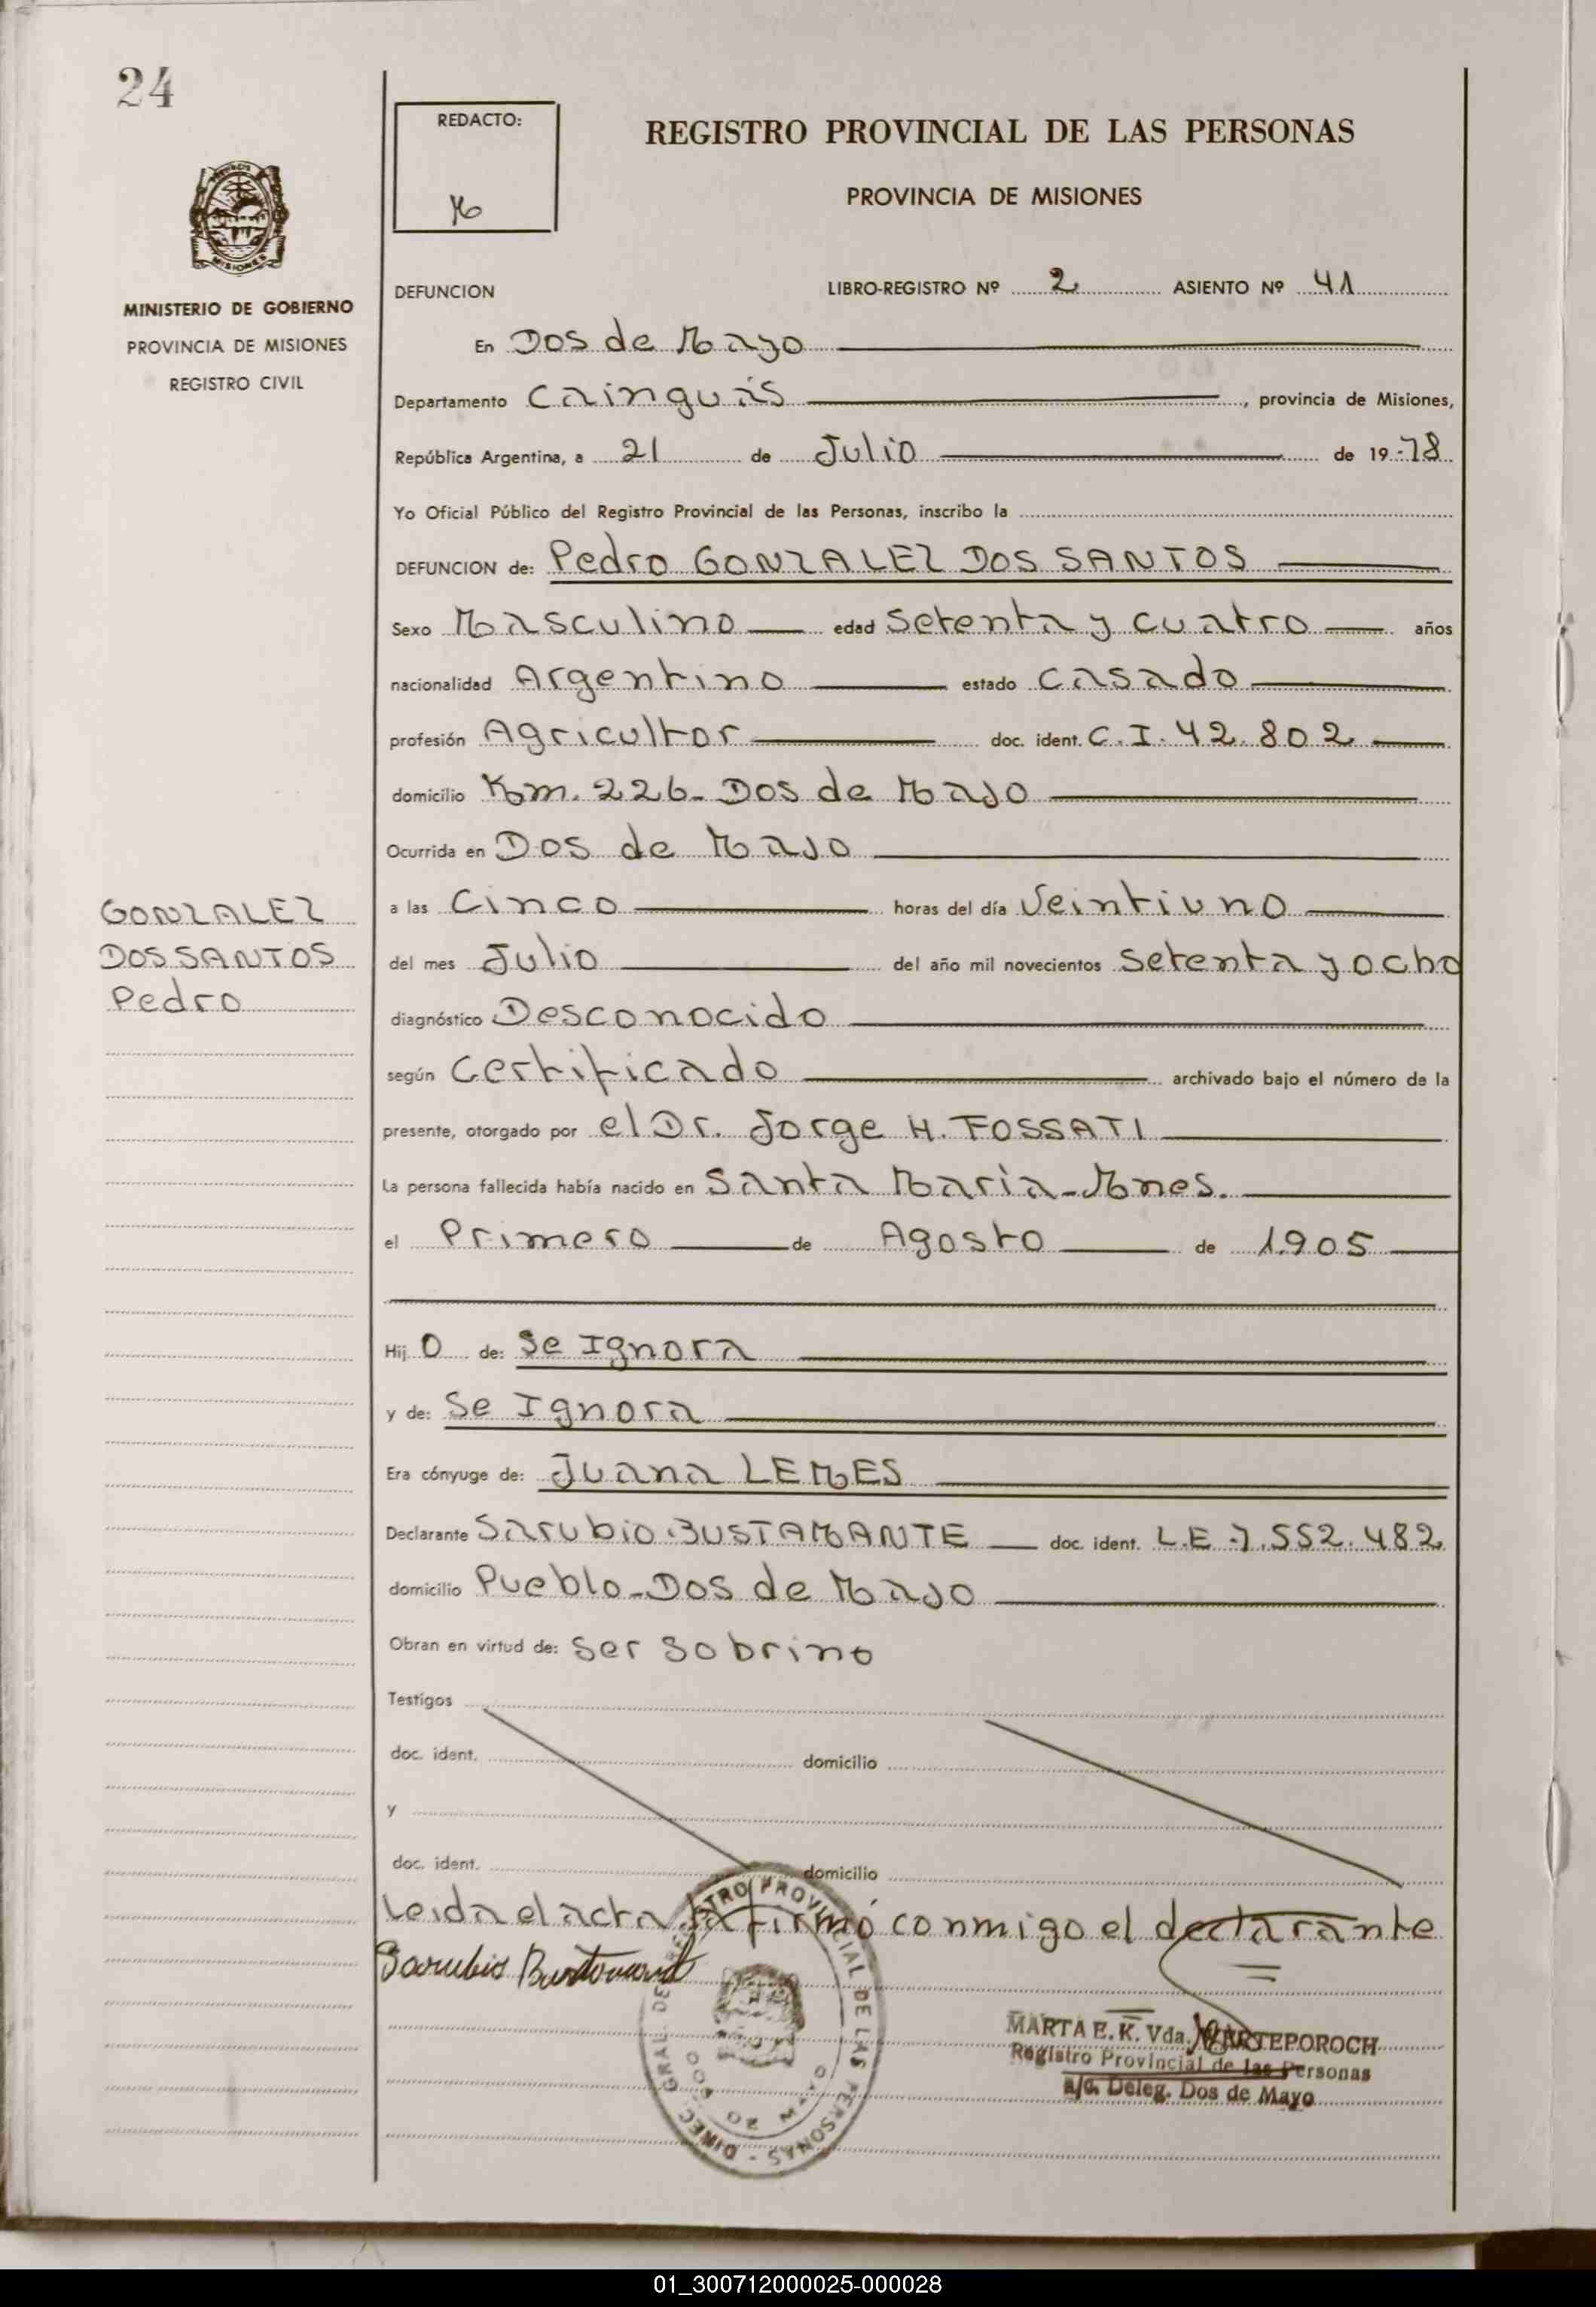 24
REDACTO:
REGISTRO PROVINCIAL DE LAS PERSONAS
PROVINCIA DE MISIONES
MINISTERIO DE GOBIERNO
PROVINCIA DE MISIONES
REGISTRO CIVIL
DEFUNCION LIBRO-REGISTRO Nº 2 ASIENTO Nº 41
En Dos de Mayo
Departamento Cainguás, provincia de Misiones,
República Argentina, a 21 de Julio de 19 78
Yo Oficial Público del Registro Provincial de las Personas, inscribo la
DEFUNCION de: Pedro GONZALEZ DOS SANTOS
Sexo Masculino edad Setenta y cuatro años
nacionalidad Argentino estado casado
profesión Agricultor doc. ident. C.I. 42.802
domicilio Km. 226- Dos de Mayo
Ocurrida en Dos de Mayo
a las Cinco horas del día Veintiuno
del mes Julio del año mil novecientos Setenta y ocho
diagnóstico Desconocido
según Certificado archivado bajo el número de la
presente, otorgado por el Dr. Jorge H. FOSSATI
La persona fallecida había nacido en Santa Maria-Mnes.
el Primero de Agosto de 1.905
Hij o de: Se Ignora
y de: Se Ignora
Era cónyuge de: Juana LEMES
Declarante Sarubio BUSTAMANTE doc. ident. L.E 7.552.482
domicilio Pueblo-Dos de Mayo
Obran en virtud de: Ser Sobrino
Testigos
doc. ident. domicilio
y
doc. ident. domicilio
Leida el acta la firmó conmigo el declarante
Sarubio Bustamant
GONZALEZ
DOS SANTOS
Pedro
DIREC. GRAL. DE REGISTRO PROVINCIAL DE LAS PERSONAS
DOS DE MAYO
MARTA E. K. Vda.
Registro Provincial de las Personas
a/c. Deleg. Dos de Mayo
01_300712000025-000028